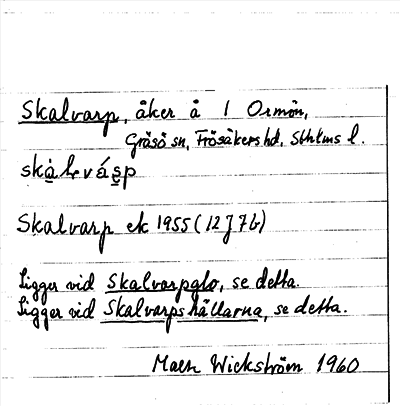 Skalvarp, åker å 1 Ormön,
Gräsö sn, Frösåkers hd, Sthlms l.
Skalvarp ek 1955 (12 J 7b)
Ligger vid Skalvarpsglo, se detta.
Ligger vid Skalvarpshällarna, se detta.
Mats Wickström 1960